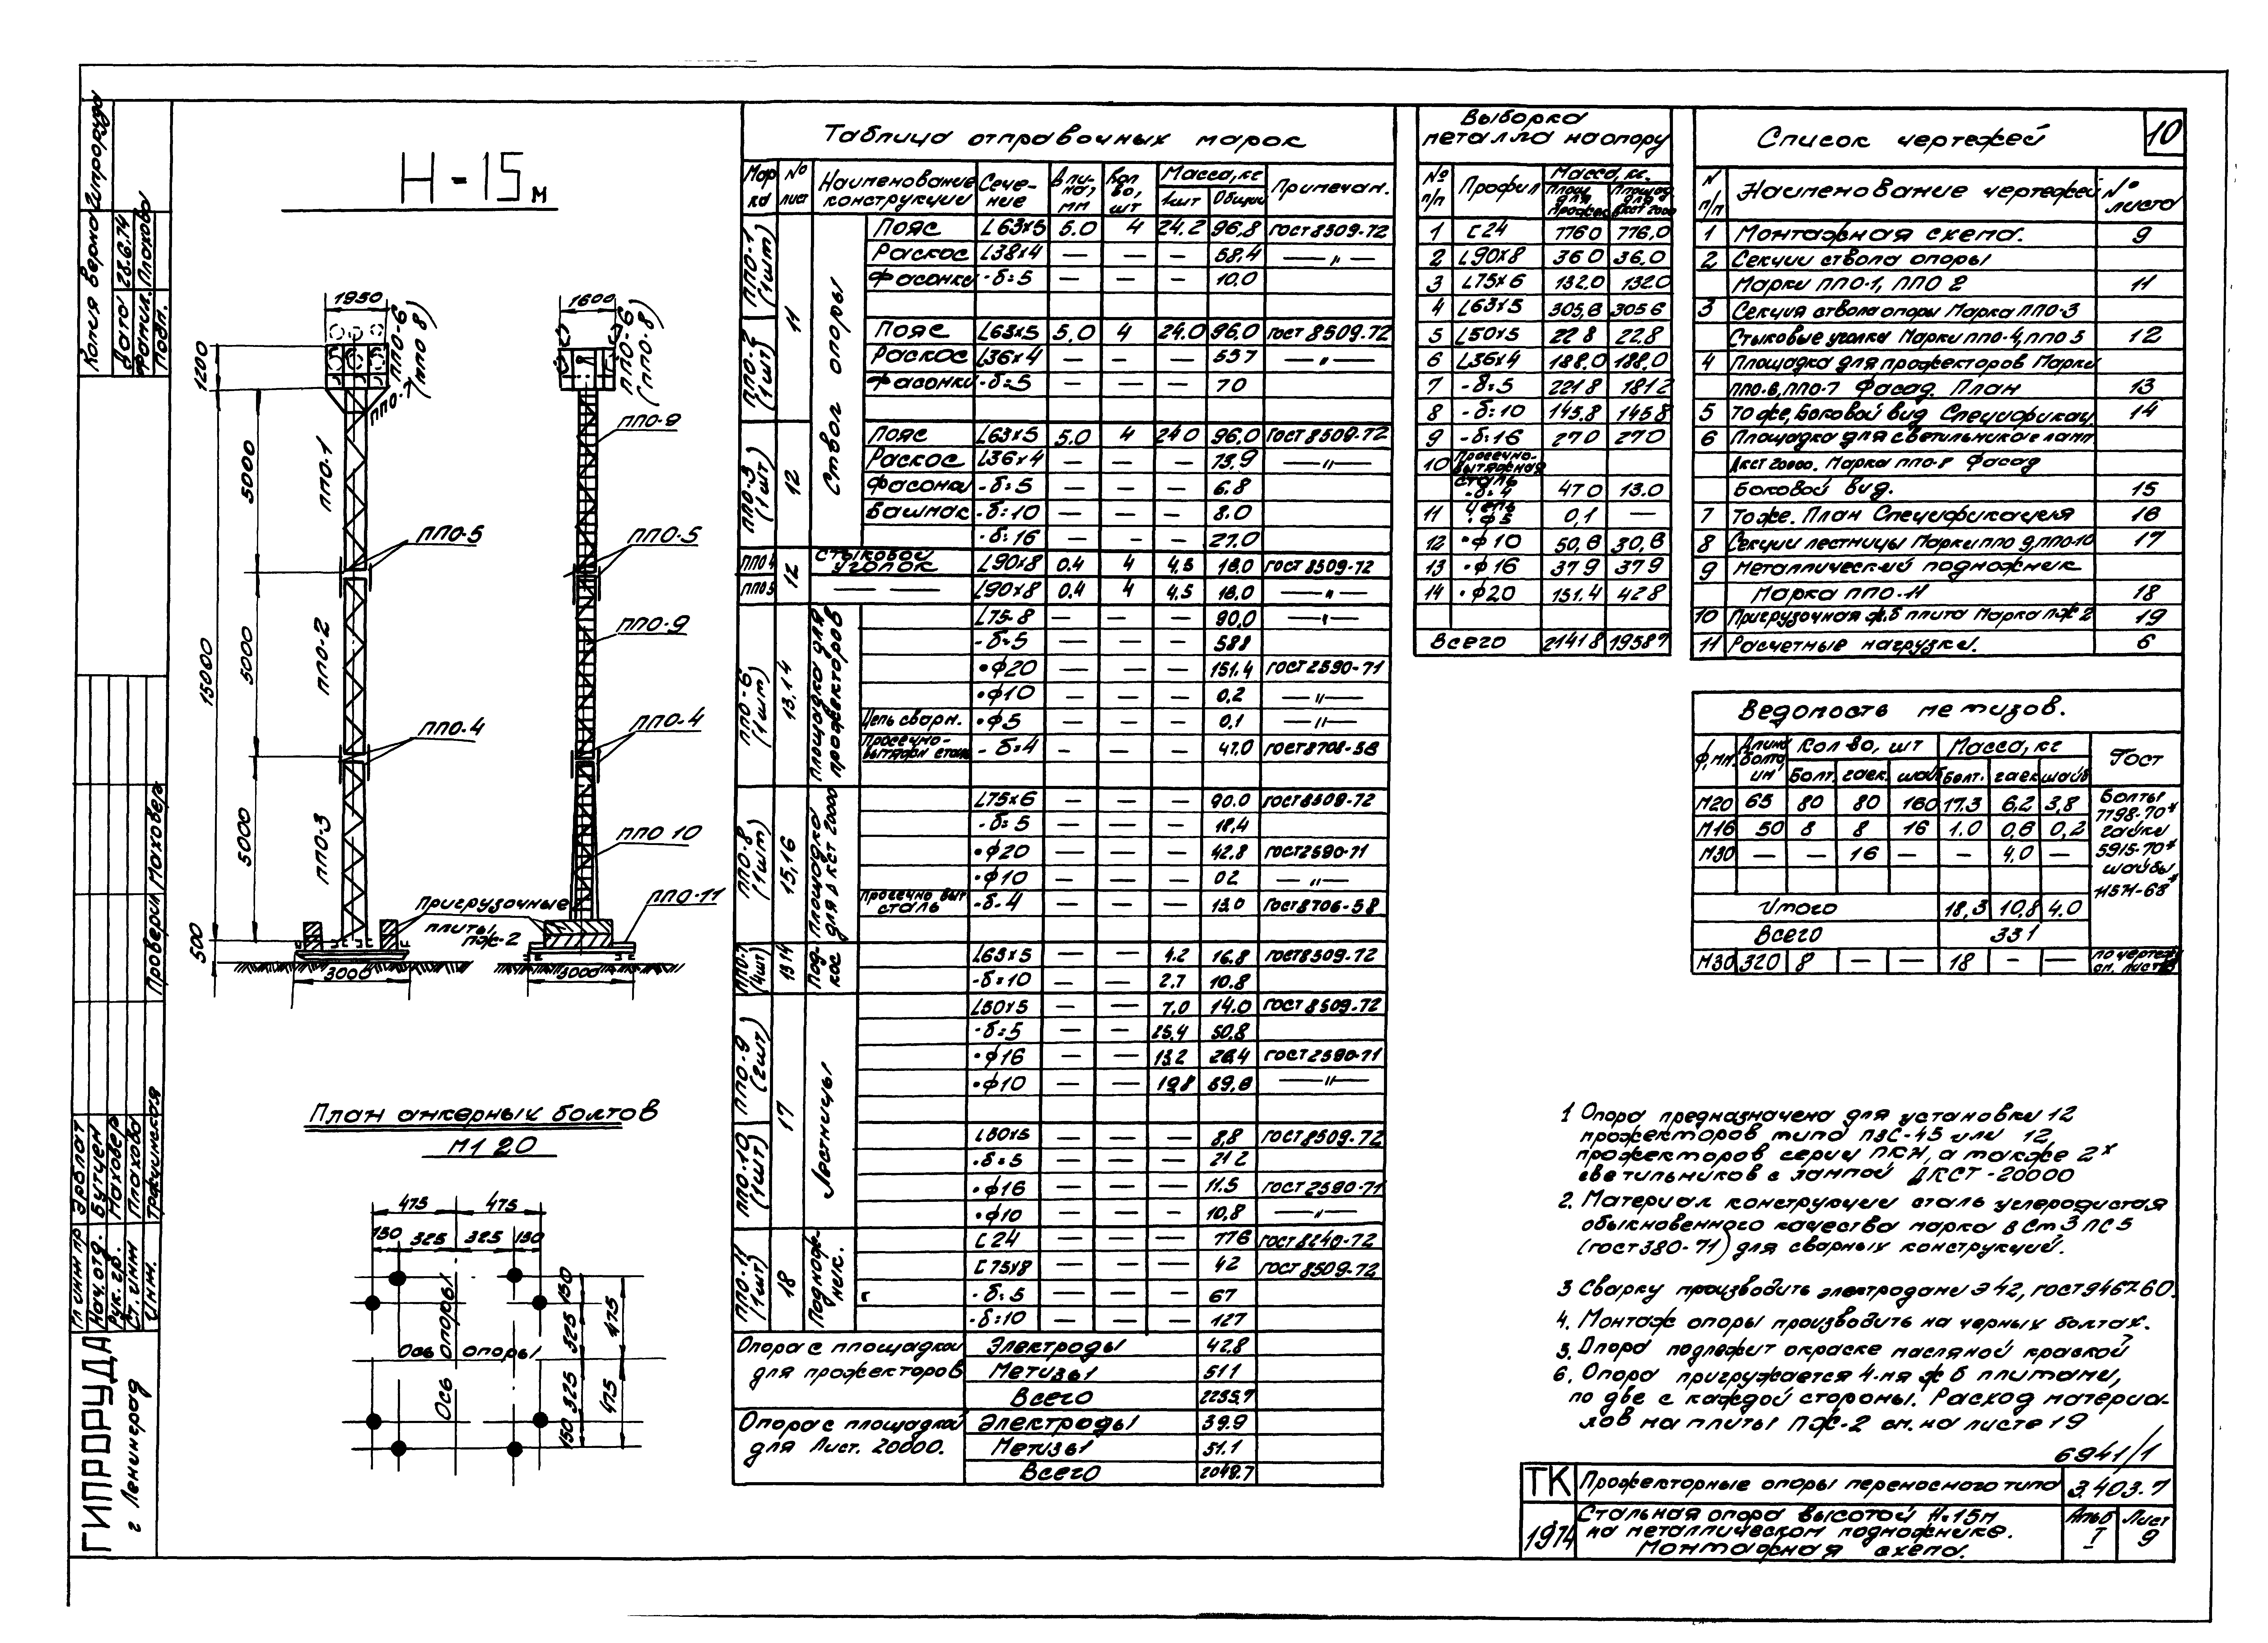 Н-15м
1950
1600
ППО-6
(ППО 8)
ППО-7
ППО-6
(ППО-8)
1200
15000
500
5000
5000
5000
ППО-1
ППО-2
ППО-3
ППО-5
ППО-4
ППО-9
ППО-5
ППО-9
ППО-4
ППО 10
ППО-11
Пригрузочные
плиты,
ПЖ-2
3000
3000
План анкерных болтов
М1 20
475 475
150 325 325 150
150
325
475
325
150
475
Ось опоры
Ось опоры
Таблица отправочных марок
Марка № лист Наименование конструкции Сечение Длина, мм Кол во, шт Масса, кг Примечан.
1шт Общий
ППО-1 (1шт) 11 Ствол опоры
Пояс L63х5 5.0 4 24.2 96,8 ГОСТ 8509-72
Раскос L38х4 — — — 58.4 —„—
Фасонки -δ=5 — — — 10.0
ППО-2 (1шт)
Пояс L63х5 5,0 4 24.0 96,0 ГОСТ 8509.72
Раскос L36х4 — — — 557 —„—
Фасонки -δ=5 — — — 70
ППО-3 (1шт) 12
Пояс L63х5 5.0 4 240 96,0 ГОСТ 8509-72
Раскос L36х4 — — — 73,9 —„—
Фасонки -δ=5 — — — 6.8
Башмак -δ=10 — — — 8.0
-δ=16 — — — 27.0
ППО 4 12 Стыковой уголок L90х8 0.4 4 4,5 18.0 ГОСТ 8509-72
ППО 5 — — L90х8 0.4 4 4,5 18.0 —„—
ППО-6 (1шт) 13,14 Площадка для прожекторов
L75-8 — — — 90,0 —„—
-δ=5 — — — 588
•φ20 — — — 151.4 ГОСТ 2590-71
•φ10 — — — 0.2 —„—
Цепь сварн. •φ5 — — — 0.1 —„—
Просечно-вытяжн сталь -δ=4 — — — 47.0 ГОСТ 8706-58
ППО-8 (1шт) 15,16 Площадка для ДКСТ 20000
L75х6 — — — 90.0 ГОСТ 8509-72
-δ=5 — — — 18,4
•φ20 — — — 42.8 ГОСТ 2590-71
•φ10 — — — 02 —„—
Просечно выт сталь -δ-4 — — — 13.0 ГОСТ 8706-58
ППО-7 (4шт) 13 14 Подкос
L63х5 — — 4.2 16.8 ГОСТ 8509.72
-δ=10 — — 2.7 10.8
ППО-9 (2шт) 17 Лестницы
L50х5 7,0 14.0 ГОСТ 8509-72
-δ=5 — — 25,4 50,8
•φ16 — — 13.2 26.4 ГОСТ 2590-71
•φ10 — — 19.8 39,6 —„—
ППО-10 (1шт)
L50х5 — — — 8,8 ГОСТ 8509-72
-δ=5 — — — 21 2
•φ16 — — — 11.5 ГОСТ 2590-71
•φ10 — — — 10,8 —„—
ППО-11 (1шт) 18 Подножник.
С 24 — — — 776 ГОСТ 8240-72
С 75х8 — — — 42 ГОСТ 8509-72
-δ=5 — — — 67
-δ=10 — — — 127
Опора с площадкой для прожекторов
Электроды 42.8
Метизы 511
Всего 2235.7
Опора с площадкой для Лист. 20000.
Электроды 39.9
Метизы 51.1
Всего 2049.7
Выборка
металла на опору
№ п/п Профиль Масса, кг.
Площ для прожек Площад. для ДКСТ 20000
1 С 24 776 0 776,0
2 L90х8 36 0 36,0
3 L75х6 132.0 132.0
4 L63х5 305,6 305 6
5 L50х5 22 8 22,8
6 L36х4 188.0 188,0
7 -δ=5 221.8 181.2
8 -δ=10 145.8 145 8
9 -δ=16 27.0 27.0
10 Просечно-вытяжная сталь -δ=4 47.0 13.0
11 Цепь •φ5 0,1 —
12 •φ10 50,6 30,6
13 •φ16 37 9 37 9
14 •φ20 151.4 42 8
Всего 2141 8 1958 7
10
Список чертежей
N п/п Наименование чертежей № листа
1 Монтажная схема. 9
2 Секции ствола опоры
Марки ППО-1, ППО 2 11
3 Секция ствола опоры Марка ППО-3
Стыковые уголки Марки ППО-4, ППО 5 12
4 Площадка для прожекторов Марки
ППО-6, ППО-7 Фасад. План 13
5 То же, Боковой вид Спецификац. 14
6 Площадка для светильника с ламп
Дкст 20000. Марка ППО-8 Фасад
Боковой вид. 15
7 То же. План Спецификация 16
8 Секции лестницы Марки ППО 9, ППО-10 17
9 Металлический подножник
Марка ППО-11 18
10 Пригрузочная ж.б плита Марка ПЖ 2 19
11 Расчетные нагрузки. 6
Ведомость метизов.
φ, мм. Длина болта мм Кол во, шт Масса, кг Гост
Болт. гаек. шайб Болт. гаек шайб
М20 65 80 80 160 17.3 6.2 3,8 Болты 7798-70*
М16 50 8 8 16 1.0 0,6 0,2 гайки 5915-70*
М30 — — 16 — — 4,0 — шайбы 11371-68*
Итого 18,3 10,8 4,0
Всего 33 1
М30 320 8 — — 18 — — по чертежу см. лист
1 Опора предназначена для установки 12
прожекторов типа ПЗС-45 или 12
прожекторов серии ПКН, а также 2х
светильников с лампой ДКСТ-20000
2. Материал конструкции сталь углеродистая
обыкновенного качества марка ВСт3ПС5
(ГОСТ 380-71) для сварных конструкций.
3 Сварку производить электродами Э 42, ГОСТ 9467-60.
4. Монтаж опоры производить на черных болтах.
5. Опора подлежит окраске масляной краской
6. Опора пригружается 4-мя ж б плитами,
по две с каждой стороны. Расход материа-
лов на плиты ПЖ-2 см. на листе 19
6941/1
ТК Прожекторные опоры переносного типа 3.403.7
1974 Стальная опора высотой Н=15м
на металлическом подножнике.
Монтажная схема.
Альб I
Лист 9
Копия верна Гипроруда
Дата 28.6.74
Фамил. Плахова
Подп.
Проверил Маховер
Гл инж пр Эрблат
Нач. отд. Бутцен
Рук. гр. Маховер
Ст. инж Плахова
Инж.
ГИПРОРУДА
г Ленинград